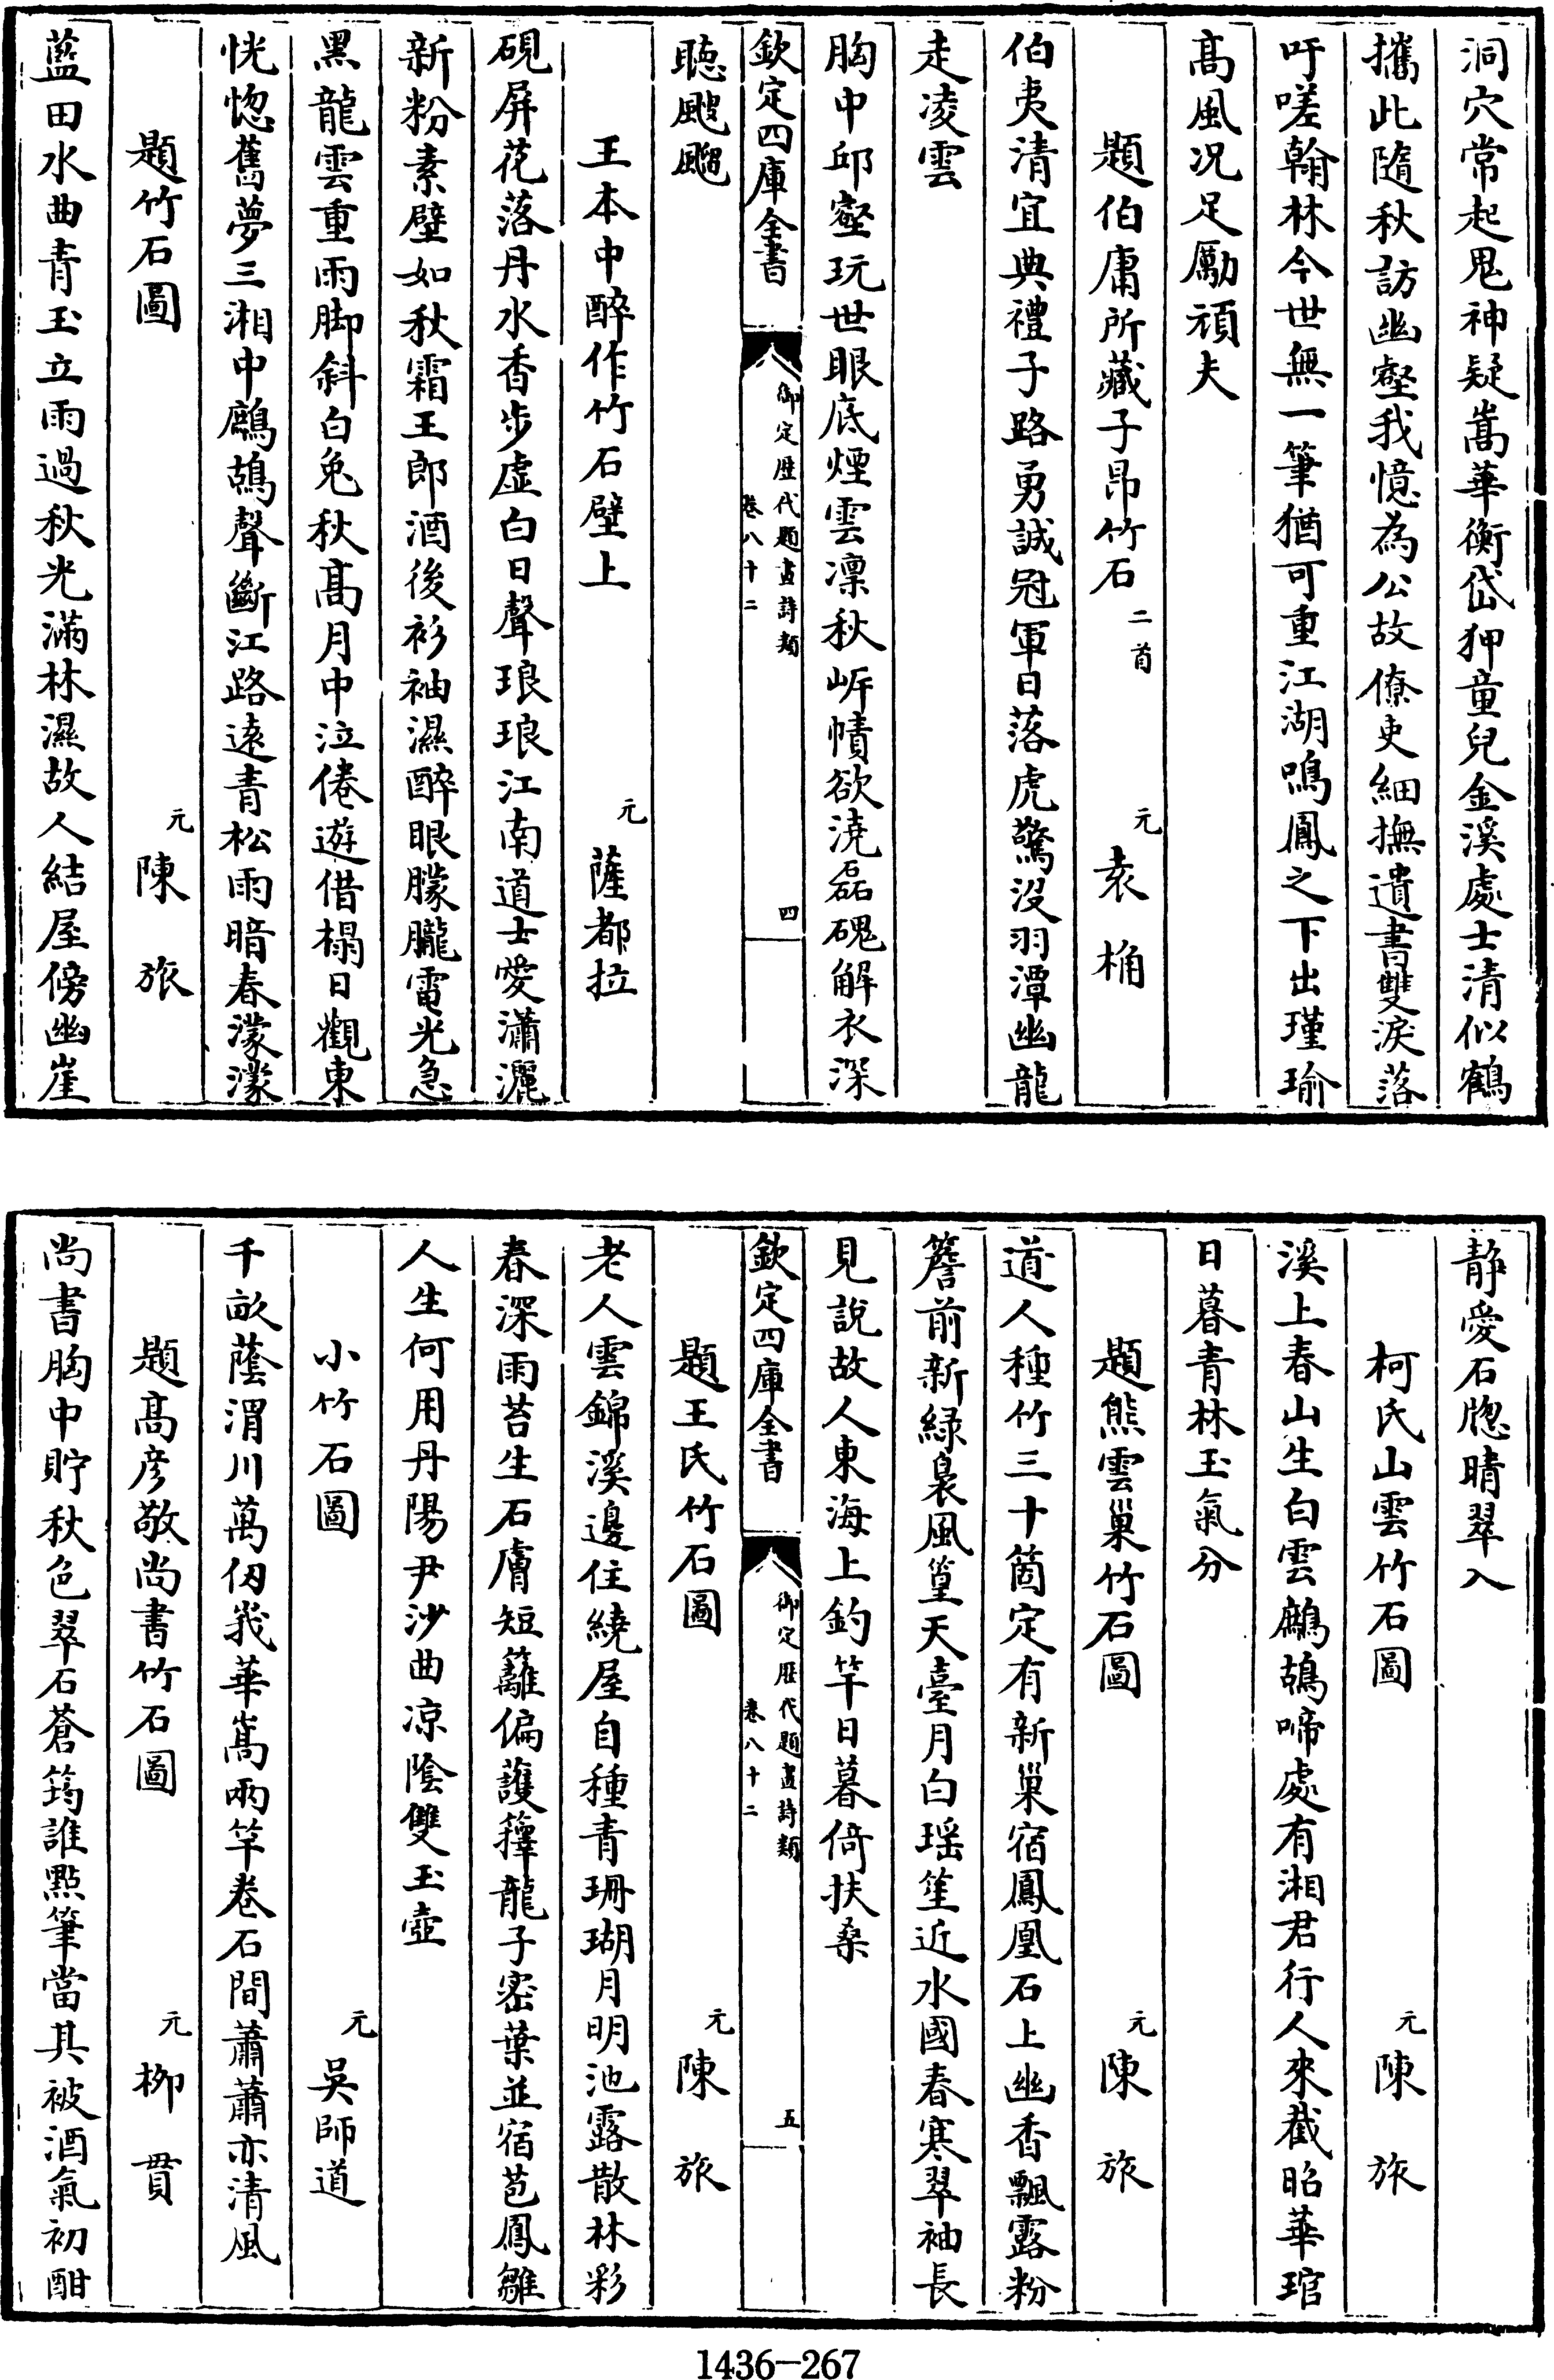 洞穴常起鬼神疑嵩華衡岱狎童兒金溪處士清似鶴
攜此隨秋訪幽壑我憶為公故僚吏細撫遺書雙淚落
吁嗟翰林今世無一筆猶可重江湖鳴鳳之下出瑾瑜
髙風况足厲頑夫
題伯庸所藏子昂竹石 二首 元 袁桷
伯夷清宜典禮子路勇誠冠軍日落虎驚没羽潭幽龍
走凌雲
胸中邱壑玩世眼底煙雲凛秋岸幘欲澆磊磈解衣深
欽定四庫全書 御定歴代題畫詩類 卷八十二 四
聽颼飀
王本中醉作竹石壁上 元 薩都拉
硯屏花落丹水香步虚白日聲琅琅江南道士愛瀟灑
新粉素壁如秋霜王郎酒後衫袖濕醉眼朦朧電光急
黑龍雲重雨脚斜白兔秋髙月中泣倦遊借榻日觀東
恍惚舊夢三湘中鷓鴣聲斷江路逺青松雨暗春濛濛
題竹石圖 元 陳旅
藍田水曲青玉立雨過秋光滿林濕故人結屋傍幽崖
静愛石牕晴翠入
柯氏山雲竹石圖 元 陳旅
溪上春山生白雲鷓鴣啼處有湘君行人來截昭華琯
日暮青林玉氣分
題熊雲巢竹石圖 元 陳旅
道人種竹三十箇定有新巢宿鳳凰石上幽香飄露粉
簷前新緑裊風篁天臺月白瑶笙近水國春寒翠袖長
見説故人東海上釣竿日暮倚扶桑
欽定四庫全書 御定歴代題畫詩類 卷八十二 五
題王氏竹石圖 元 陳旅
老人雲錦溪邊住繞屋自種青珊瑚月明池露散林彩
春深雨苔生石膚短籬偏護籜龍子密葉並宿苞鳳雛
人生何用丹陽尹沙曲凉陰雙玉壺
小竹石圖 元 吳師道
千畝蔭渭川萬仭峩華嵩兩竿卷石間蕭蕭亦清風
題髙彦敬尚書竹石圖 元 柳貫
尚書胸中貯秋色翠石蒼筠誰㸃筆當其被酒氣初酣
1436—267